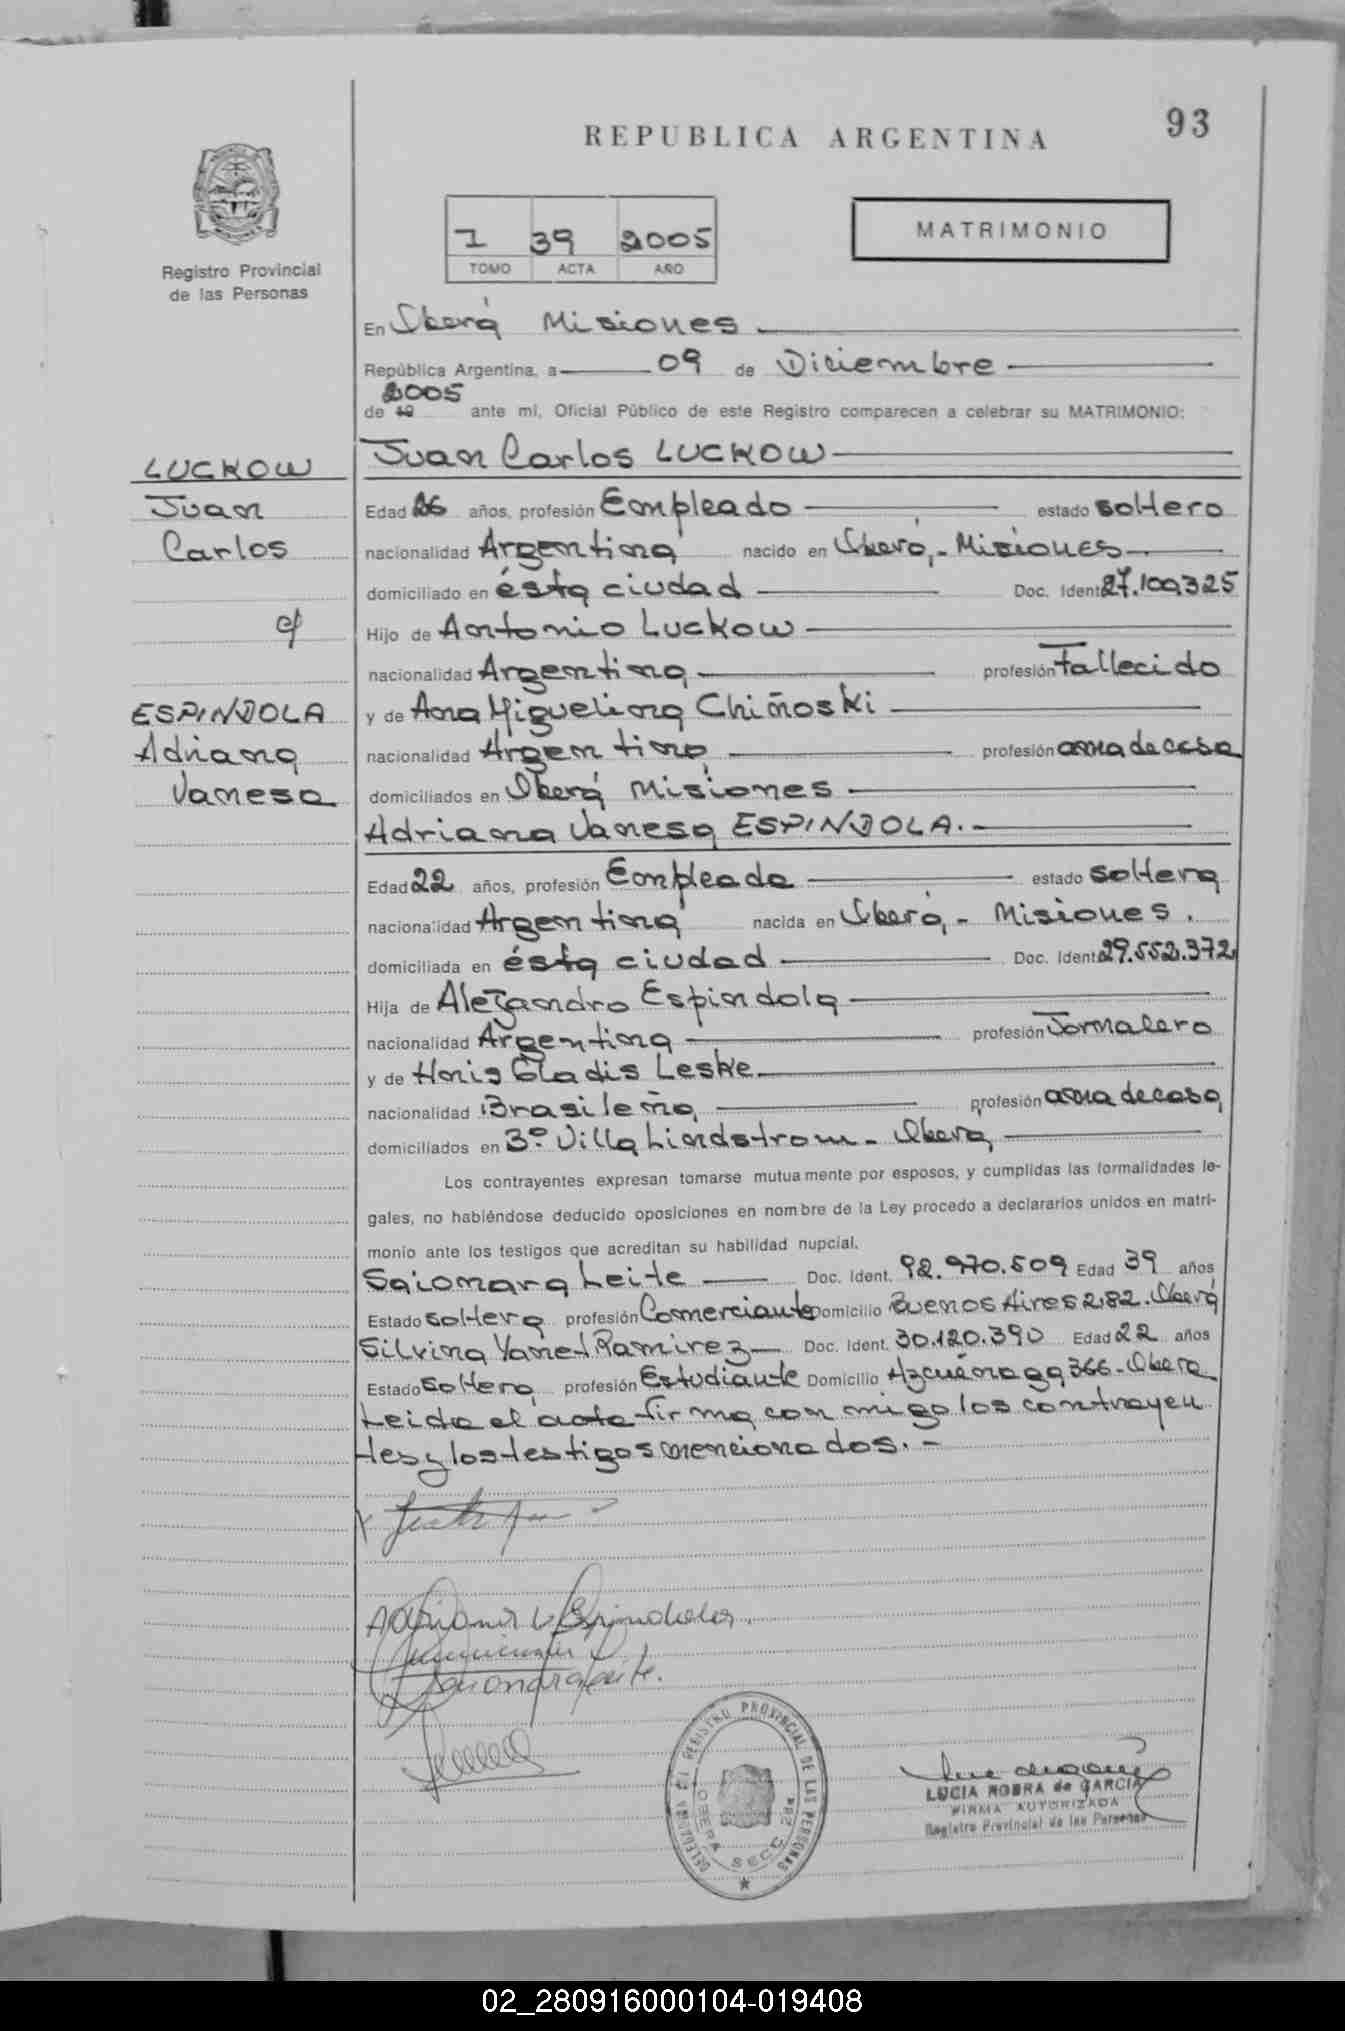 93
REPUBLICA ARGENTINA
Registro Provincial
de las Personas
I 39 2005
TOMO ACTA AÑO
MATRIMONIO
En Oberá Misiones
República Argentina, a 09 de Diciembre
2005
de 19 ante mí, Oficial Público de este Registro comparecen a celebrar su MATRIMONIO:
LUCKOW
Juan
Carlos
c/
ESPINDOLA
Adriana
Vanesa
Juan Carlos LUCKOW
Edad 26 años, profesión Empleado estado soltero
nacionalidad Argentina nacido en Oberá,- Misiones
domiciliado en ésta ciudad Doc. Ident 27.109.325
Hijo de Antonio Luckow
nacionalidad Argentina profesión Fallecido
y de Ana Miguelina Chiñoski
nacionalidad Argentina profesión ama de casa
domiciliados en Oberá Misiones
Adriana Vanesa ESPINDOLA.-
Edad 22 años, profesión Empleada estado soltera
nacionalidad Argentina nacida en Oberá,- Misiones.
domiciliada en ésta ciudad Doc. Ident 29.552.372
Hija de Alejandro Espindola
nacionalidad Argentina profesión Jornalero
y de Gladis Leske
nacionalidad Brasileña profesión ama de casa
domiciliados en 3º Villa Lindstrom - Oberá
Los contrayentes expresan tomarse mutuamente por esposos, y cumplidas las formalidades le-
gales, no habiéndose deducido oposiciones en nombre de la Ley procedo a declararlos unidos en matri-
monio ante los testigos que acreditan su habilidad nupcial.
Saiomara Leite Doc. Ident. 92.970.509 Edad 39 años
Estado soltera profesión Comerciante Domicilio Buenos Aires 2182. Oberá
Silvina Yanet Ramirez Doc. Ident. 30.120.390 Edad 22 años
Estado soltera profesión Estudiante Domicilio Azcuénaga 366- Oberá
Leida el acta firma con migo los contrayen
tes y los testigos mencionados.-
Adriana V Espindola.
Saiomara Leite.
DELEGADURA DEL REGISTRO PROVINCIAL DE LAS PERSONAS
OBERA SECC 28ª
LUCIA ROBRA de GARCIA
FIRMA AUTORIZADA
Registro Provincial de las Personas
02_280916000104-019408